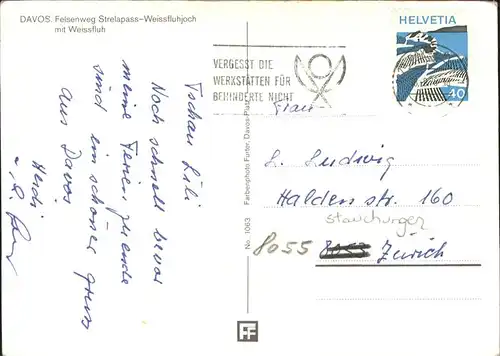 DAVOS. Felsenweg Strelapass–Weissfluhjoch
mit Weissfluh
Tschau Lili
Noch schnell bevor
meine Ferien zu ende
sind ein schöner gruss
aus Davos
Heidi
VERGESST DIE
WERKSTÄTTEN FÜR
BEHINDERTE NICHT
HELVETIA
40
Frau
L. Ludwig
Halden str. 160
Stauchurger
8055 8053 Zürich
No. 1063 Farbenphoto Furter, Davos-Platz
FF